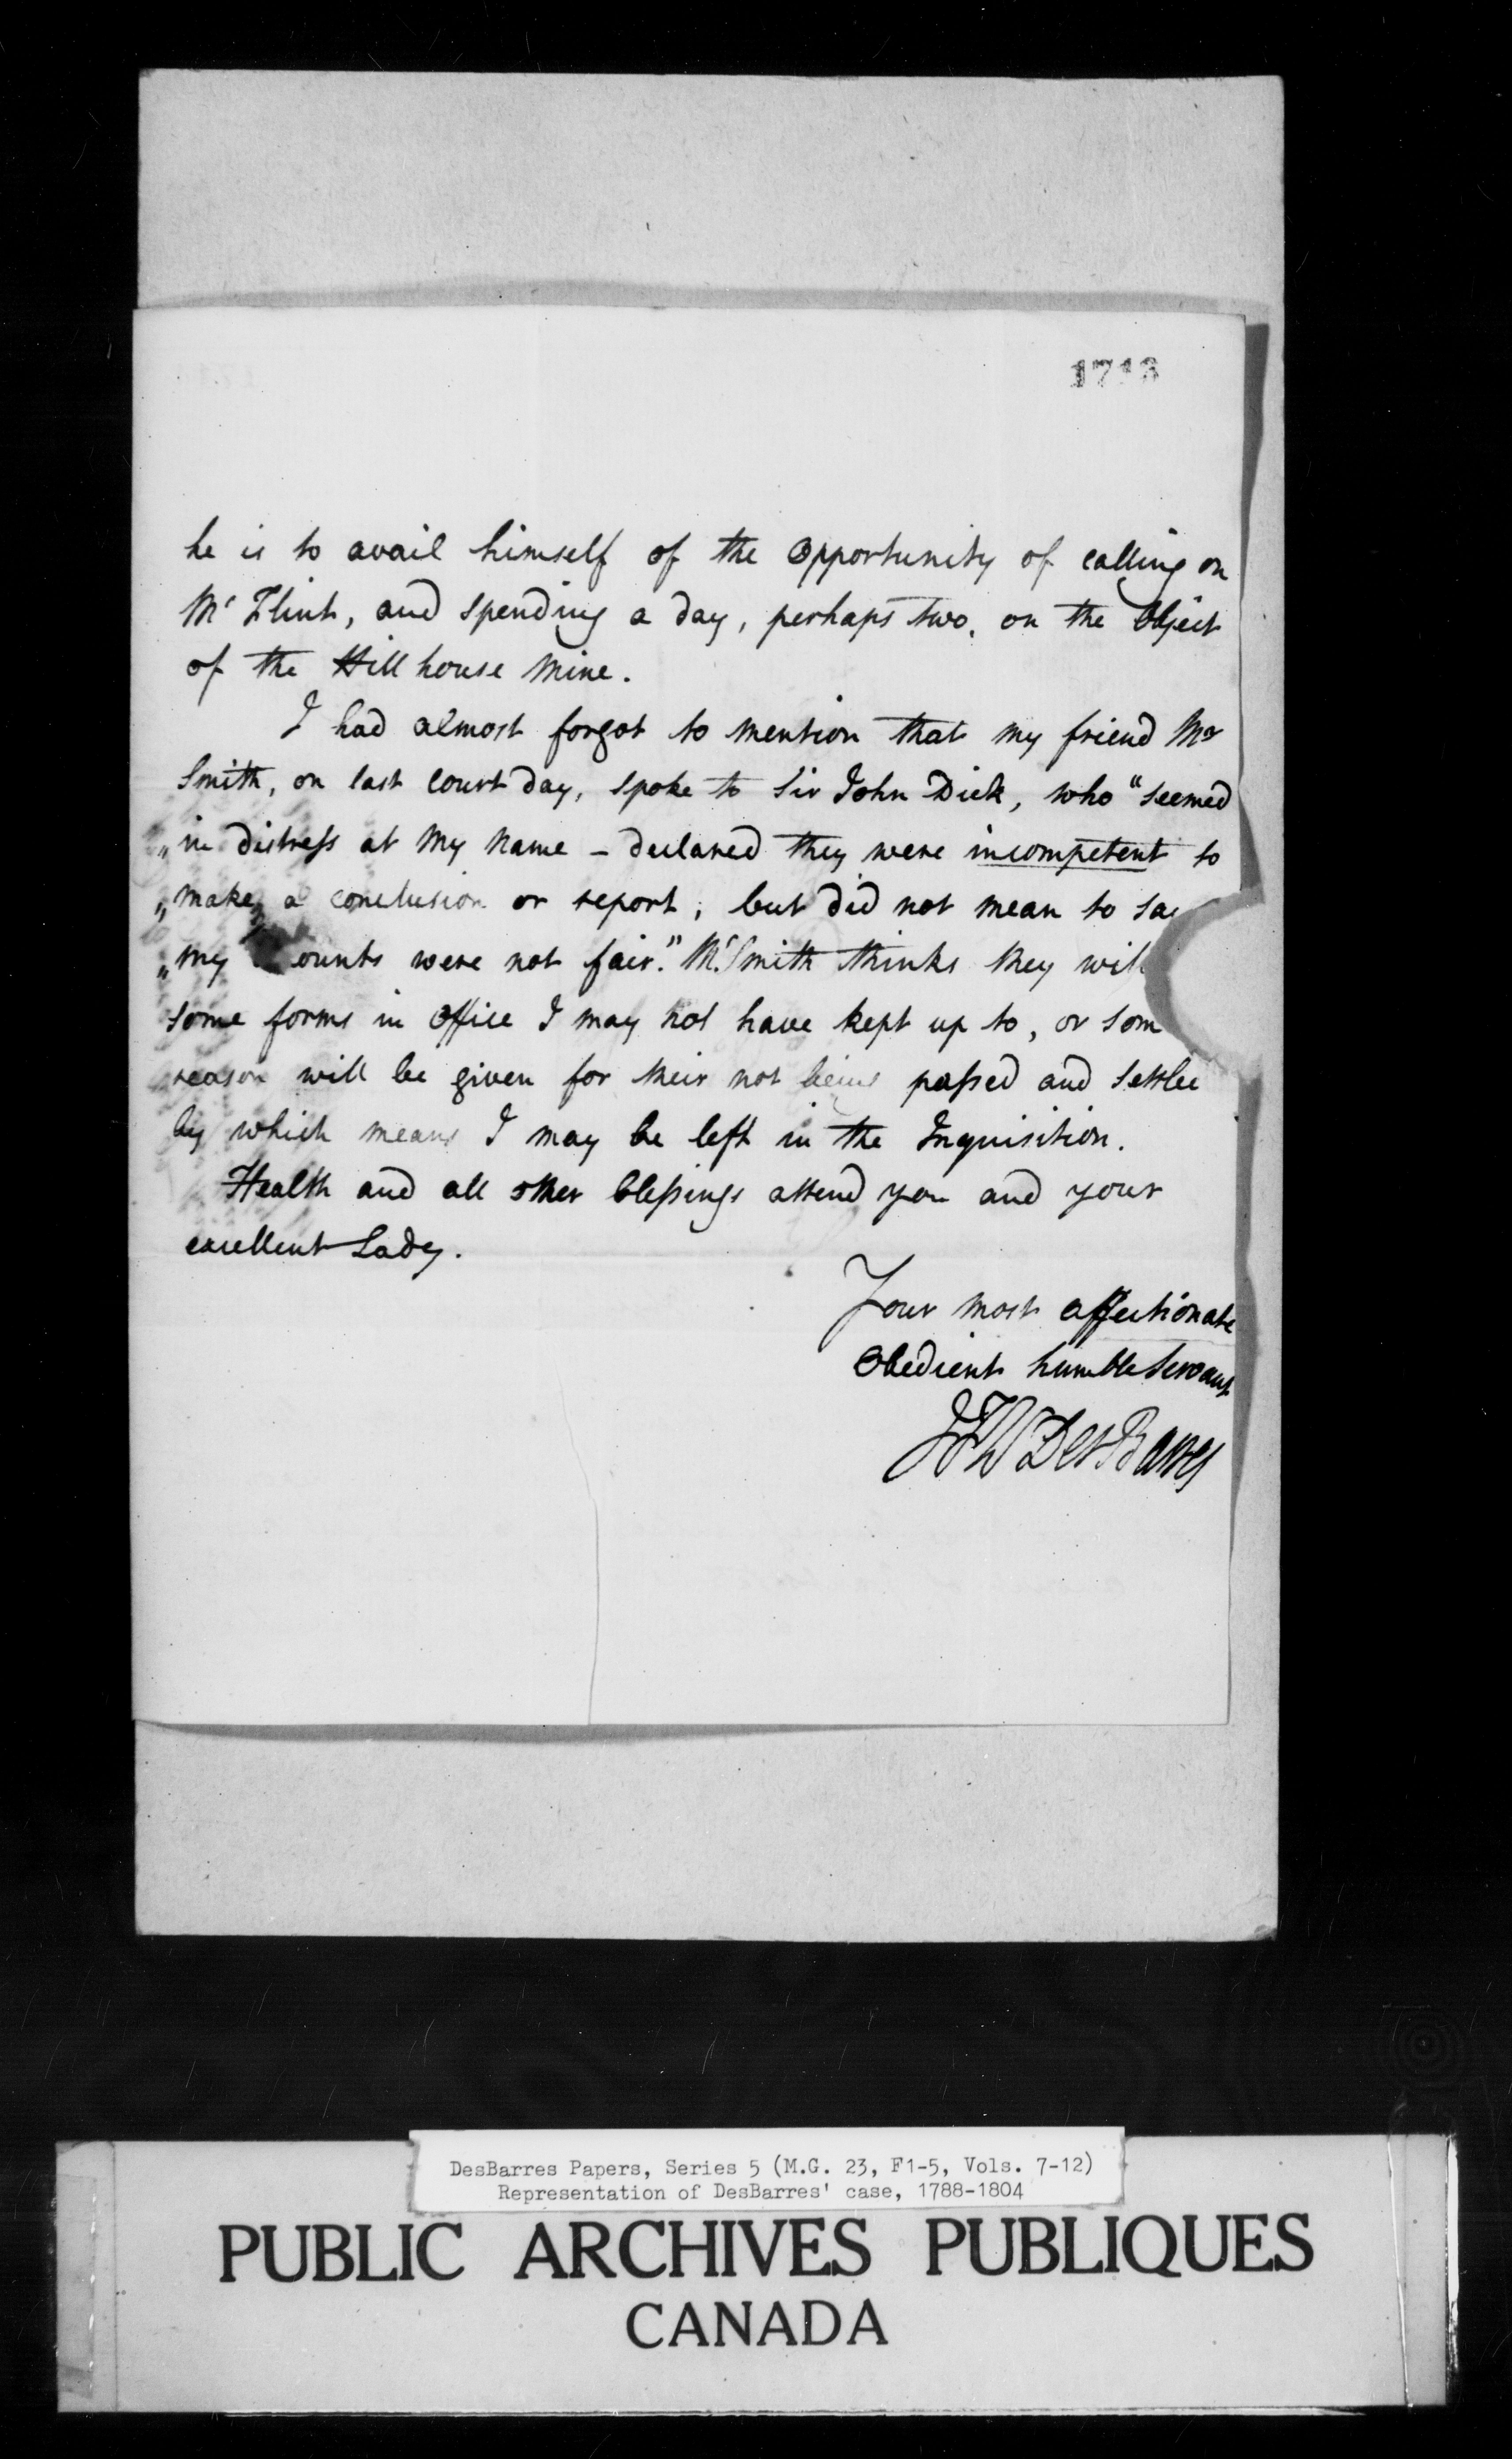 1713
he is to avail himself of the Opportunity of calling on
Mr Flint, and spending a day, perhaps two, on the Object
of the Hill house Mine.
I had almost forgot to mention that my friend Mr
Smith, on last Court day, spoke to Sir John Dick, who "seemed
"in distress at my name - declared they were incompetent to
"make a conclusion or report; but did not mean to sa
"my ounts were not fair." Mr Smith thinks they wil
some forms in Office I may not have kept up to, or som
reason will be given for their not being passed and settled
by which means I may be left in the Inquisition.
Health and all other blessings attend you and your
excellent Lady.
Your most affectionate
Obedient humble Servant
JFW DesBarres
DesBarres Papers, Series 5 (M.G. 23, F1-5, Vols. 7-12)
Representation of DesBarres' case, 1788-1804
PUBLIC ARCHIVES PUBLIQUES
CANADA